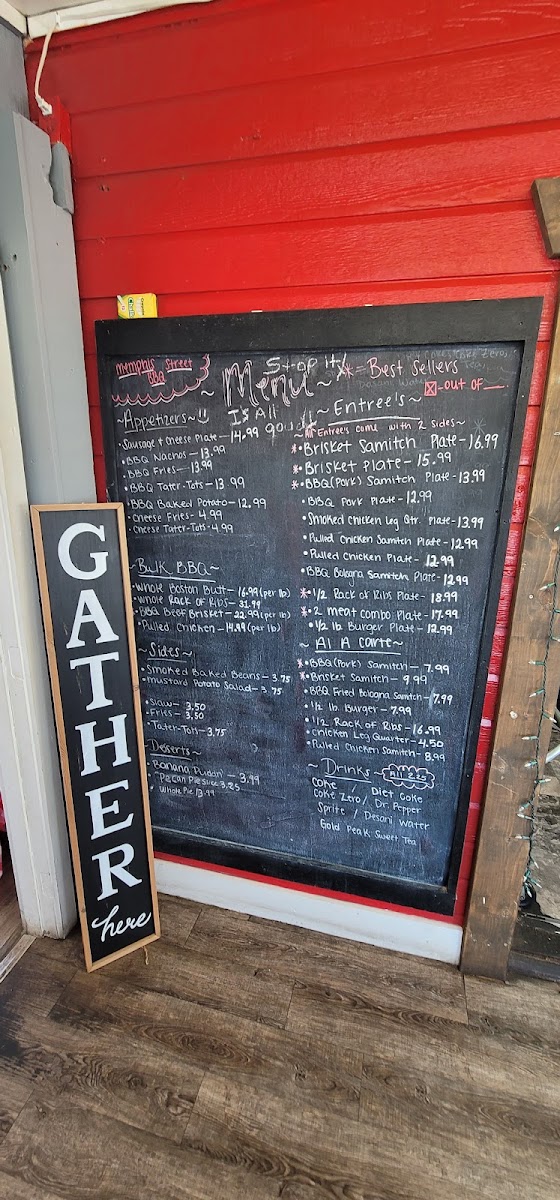 memphis street
BBQ
~ Menu ~
Stop it!
Is All
good!!
* = Best Sellers
-out of
~Appetizers~
Sausage & Cheese Plate - 14.99
• BBQ Nachos - 13.99
• BBQ Fries - 13.99
• BBQ Tater-Tots - 13.99
• BBQ Baked Potato - 12.99
• Cheese Fries - 4.99
• Cheese Tater-Tots - 4.99
~Bulk BBQ~
• Whole Boston Butt - 16.99 (per lb)
• Whole Rack of Ribs - 31.99
• BBQ Beef Brisket - 22.99 (per lb)
• Pulled Chicken - 14.99 (per lb)
~Sides~
• Smoked Baked Beans - 3.75
• Mustard Potato Salad - 3.75
• Slaw - 3.50
• Fries - 3.50
• Tater-Tots - 3.75
Desserts~
• Banana Puddin - 3.99
• Pecan Pie Slice 3.25
• Whole Pie 13.99
~ Entree's ~
* All Entrees come with 2 sides ~
* • Brisket Samitch Plate - 16.99
* • Brisket Plate - 15.99
* • BBQ (Pork) Samitch Plate - 13.99
• BBQ Pork Plate - 12.99
• Smoked Chicken Leg Qtr. Plate - 13.99
• Pulled Chicken Samitch Plate - 12.99
• Pulled Chicken Plate - 12.99
• BBQ Bologna Samitch Plate - 12.99
* • 1/2 Rack of Ribs Plate - 18.99
* • 2 meat combo Plate - 17.99
• 1/2 lb Burger Plate - 12.99
~ Al A carte ~
* • BBQ (Pork) Samitch - 7.99
* • Brisket Samitch - 9.99
• BBQ Fried Bologna Samitch - 7.99
• 1/2 lb. Burger - 7.99
• 1/2 Rack of Ribs - 16.99
• Chicken Leg Quarter - 4.50
• Pulled Chicken Samitch - 8.99
~ Drinks ~
Coke / Diet Coke
Coke Zero / Dr. Pepper
Sprite / Desani Water
Gold Peak Sweet Tea
GATHER
here